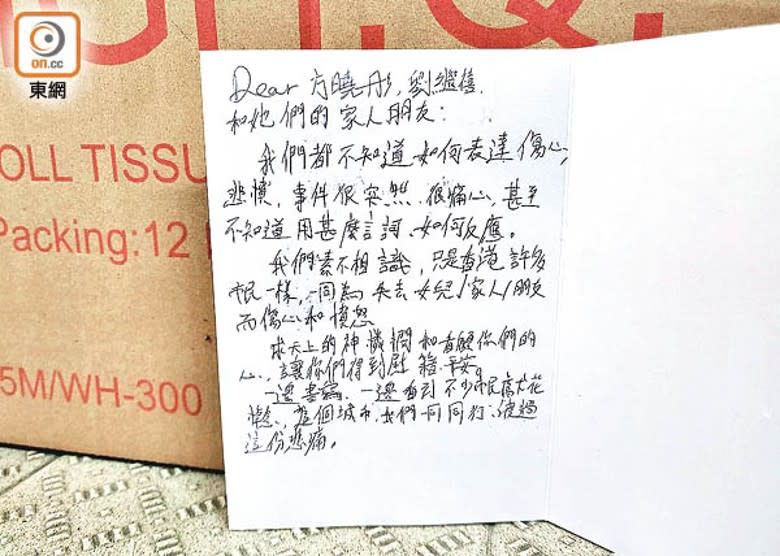 on.cc
東網
OLL TISSU
Packing:12
5M/WH-300
Dear 方曉彤, 劉繼禧
和她們的家人朋友：
我們都不知道如何表達傷心,
悲憤, 事件很突然、很痛心, 甚至
不知道用甚麼言詞、如何反應。
我們素不相識, 只是香港許多
市民一樣, 一同為 失去 女兒/家人/朋友
而傷心和憤怒
求天上的神 憐憫和看顧你們的
心, 讓你們得到慰籍、平安。
一邊書寫, 一邊看到 不少市民 獻花
這個城市, 我們一同同行、渡過
這份悲痛。